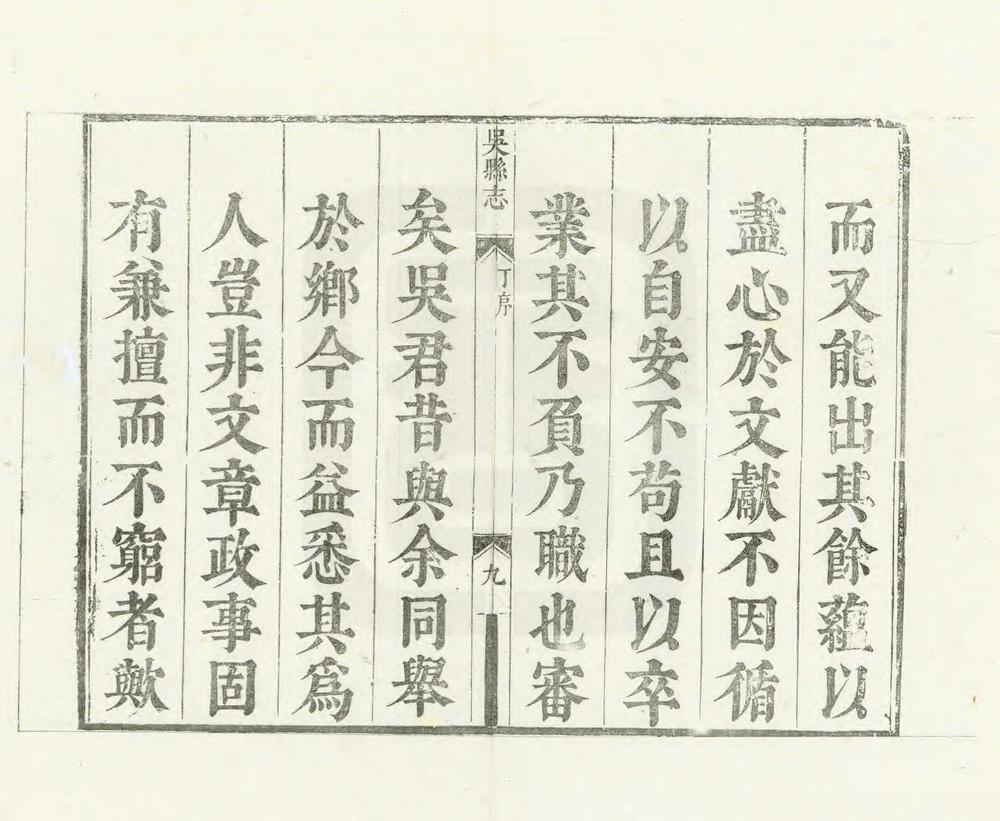 而又能出其餘蘊以
盡心於文獻不因循
以自安不苟且以卒
業其不負乃職也審
吳縣志
丁序
九
矣吳君昔與余同舉
於鄉今而益悉其爲
人豈非文章政事固
有兼擅而不窮者歟